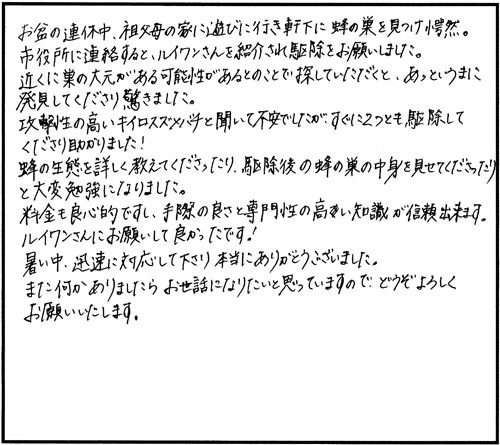 お盆の連休中、祖父母の家に遊びに行き軒下に蜂の巣を見つけ愕然。
市役所に連絡すると、ルイワンさんを紹介され駆除をお願いしました。
近くに巣の大元がある可能性があるとのことで探していただくと、あっというまに
発見してくださり驚きました。
攻撃性の高いキイロスズメバチと聞いて不安でしたが、すぐに2つとも駆除して
くださり助かりました!
蜂の生態を詳しく教えてくださったり、駆除後の蜂の巣の中身を見せてくださったり
と大変勉強になりました。
料金も良心的ですし、手際の良さと専門性の高い知識が信頼出来ます。
ルイワンさんにお願いして良かったです!
暑い中、迅速に対応して下さり本当にありがとうございました。
また何かありましたらお世話になりたいと思っていますので、どうぞよろしく
お願いいたします。